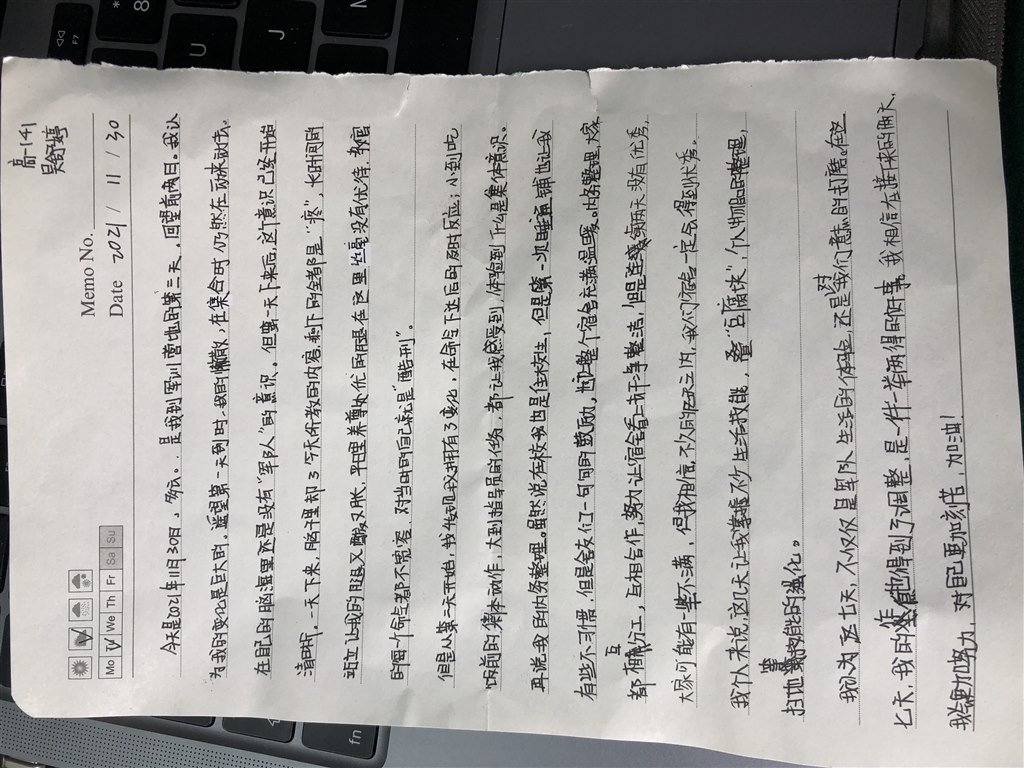 高一141
吴舒婷
Memo No.
Mo Tu We Th Fr Sa Su
Date 2021 / 11 / 30
今天是2021年11月30日,多云。是我到军训营地的第三天,回望前两日。我认
为我的变化是巨大的。遥望第一天到时,我的懒散,在集合时仍然在
在自己的脑海里还是没有“军队人”的意识。但第一天下来后,这个意识已经开始
清晰,一天下来,脑子里却了今天所教的内容,剩下的全都是“疼”,长时间的
站立让我的腿又酸又胀,平日里养尊处优的腿在这里丝毫没有优待,教官
的每一个命令都不宽容,对当时的自己就是“酷刑”。
但是从第二天开始,我发现我拥有了变化,在命令下达后的及时反应,小到吃
饭前的集体动作,大到指导员的任务,都让我感受到,体验到什么是集体意识。
再说我的内务整理。虽然说在校我也是住校生,但是第一次睡通铺也让我
有些不习惯,但是舍友们一句句的鼓励,也让整个宿舍充满温暖。内务整理,大家
都分工,互相合作,努力让宿舍看上去干净整洁,但是连续两天没有优秀,
大家可能有一些不满,但我相信,不久的几天之内,我们宿舍一定会得到优秀。
我个人来说,这几天让我掌握不少生活技能,叠“豆腐块”,个人物品的整理,
扫地等技能的强化。
我认为这七天,不仅仅是军队生活的体验,还是对我们意志的制磨。在这
七天,我的作息也得到了调整,是一件一举两得的好事,我相信在接来的两天,
我会更加努力,对自己要加刻苦,加油!
F7
* 8
U
J
M
fn